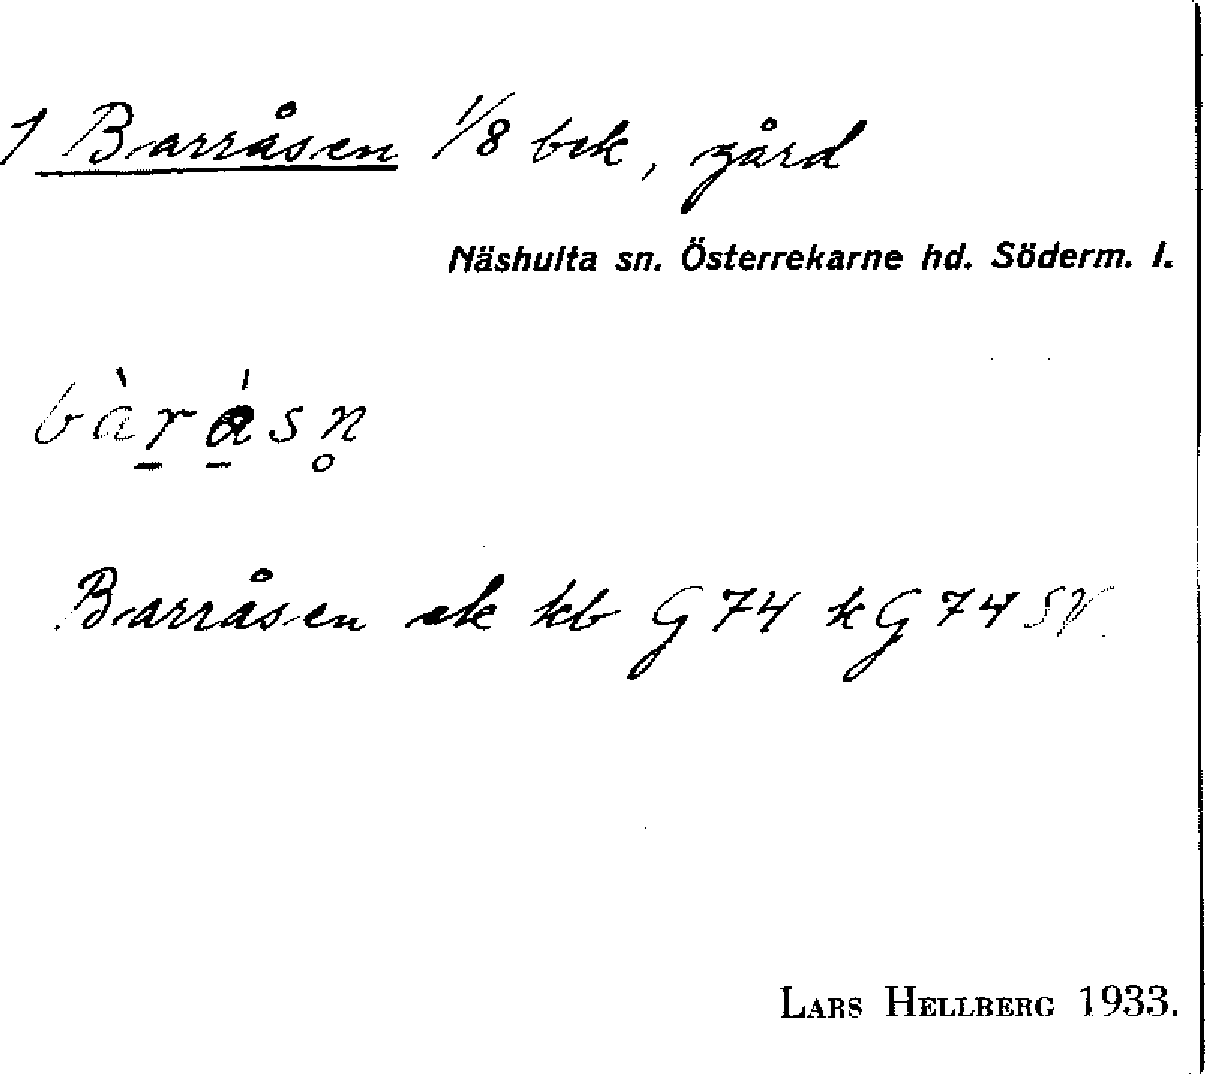 1 Barråsen 1/8 bek, gård
Näshulta sn. Österrekarne hd. Söderm. l.
Barråsen ek kb G 74 k G 74 SV.
LARS HELLBERG 1933.